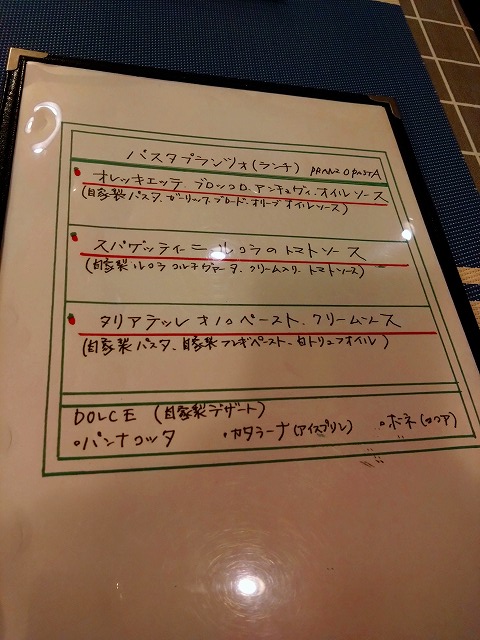 パスタプランツォ(ランチ) PRANZO PASTA
オレッキエッテ ブロッコロ、アンチョヴィ、オイルソース
(自家製パスタ、ガーリックブロード、オリーブオイルソース)
スパゲッティーニ ルコラのトマトソース
(自家製ルコラ コルチヴァータ、クリーム入り、トマトソース)
タリアテッレ キノコペースト、クリームソース
(自家製パスタ、自家製フンギペースト、白トリュフオイル)
DOLCE (自家製デザート)
•パンナコッタ •カタラーナ(アイスプリン) •ボネ(ココア)